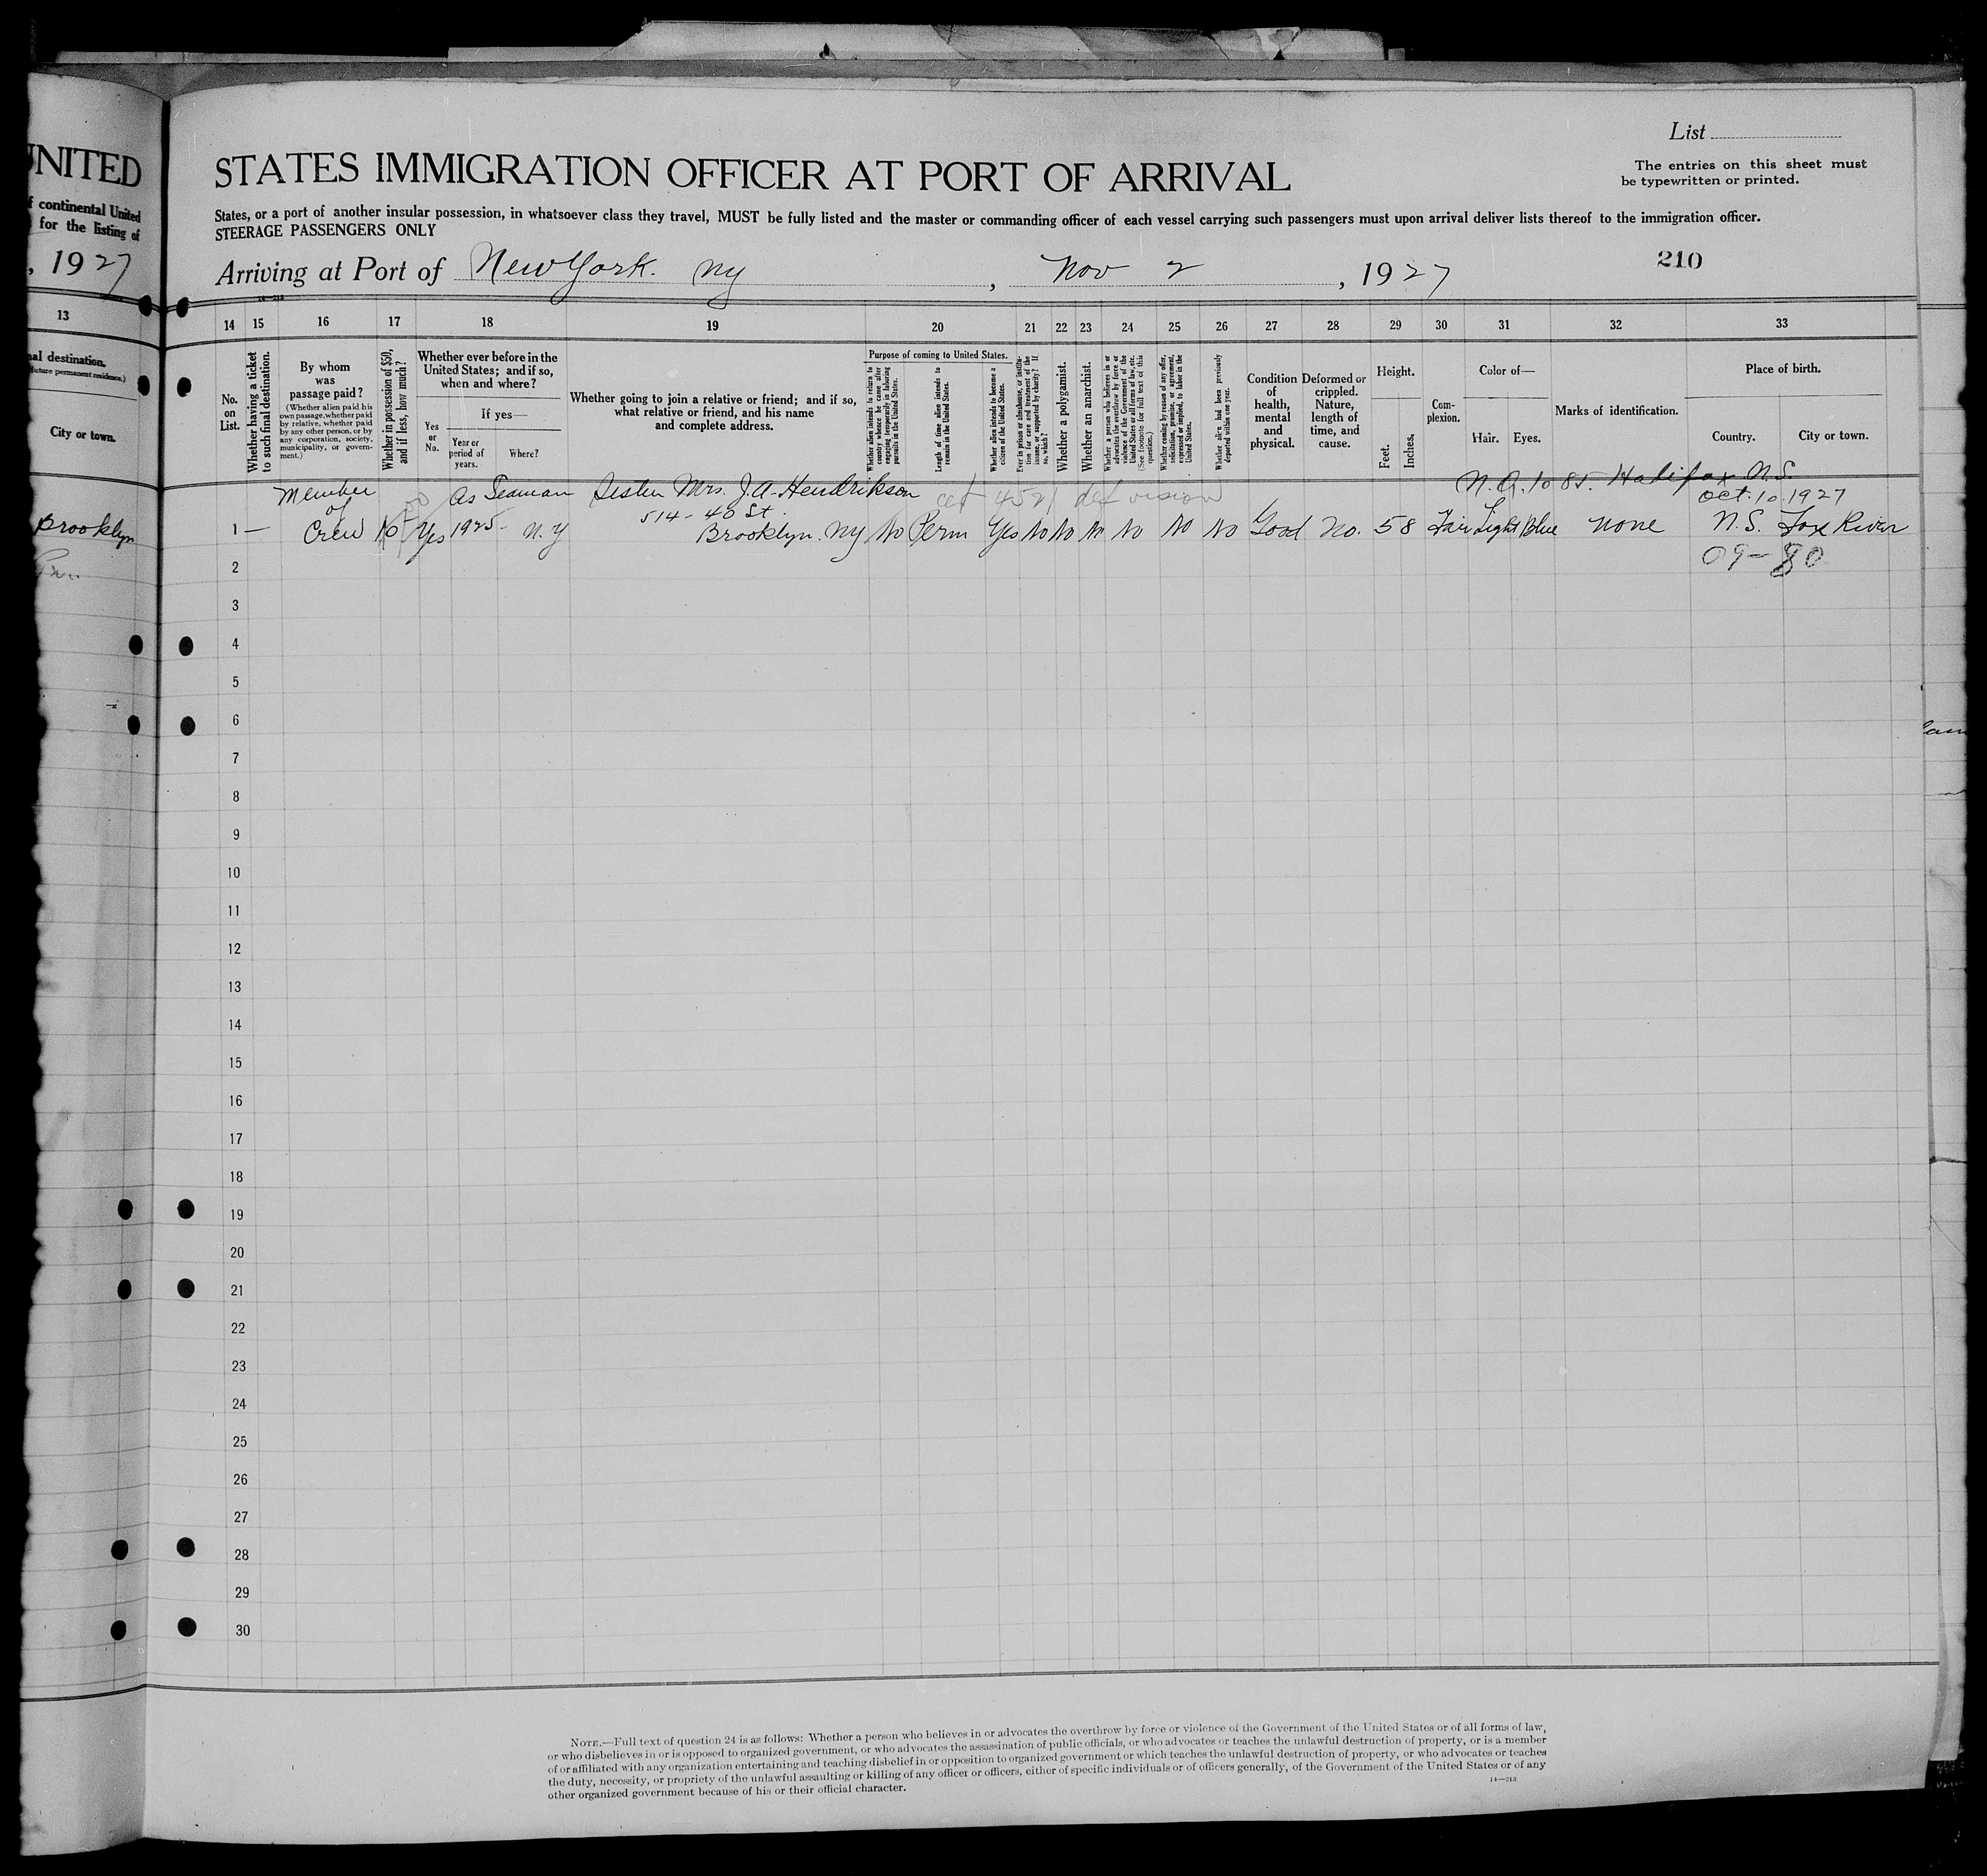 UNITED
f continental United
for the listing of
, 1927
13
nal destination.
(future permanent residence.)
City or town.
Brooklyn
List
The entries on this sheet must
be typewritten or printed.
STATES IMMIGRATION OFFICER AT PORT OF ARRIVAL
States, or a port of another insular possession, in whatsoever class they travel, MUST be fully listed and the master or commanding officer of each vessel carrying such passengers must upon arrival deliver lists thereof to the immigration officer.
STEERAGE PASSENGERS ONLY
Arriving at Port of New York. Ny, Nov 2, 1927
210
14—213
14 15 16 17 18 19 20 21 22 23 24 25 26 27 28 29 30 31 32 33
No. on List.
Whether having a ticket to such final destination.
By whom was passage paid?
(Whether alien paid his own passage, whether paid by relative, whether paid by any other person, or by any corporation, society, municipality, or government.)
Whether in possession of $50, and if less, how much?
Whether ever before in the United States; and if so, when and where?
Yes or No.
If yes—
Year or period of years.
Where?
Whether going to join a relative or friend; and if so, what relative or friend, and his name and complete address.
Purpose of coming to United States.
Whether alien intends to return to country whence he came after engaging temporarily in laboring pursuits in the United States.
Length of time alien intends to remain in the United States.
Whether alien intends to become a citizen of the United States.
Ever in prison or almshouse, or institution for care and treatment of the insane, or supported by charity? If so, which?
Whether a polygamist.
Whether an anarchist.
Whether a person who believes in or advocates the overthrow by force or violence of the Government of the United States or all forms of law, etc. (See footnote for full text of this question.)
Whether coming by reason of any offer, solicitation, promise, or agreement, expressed or implied, to labor in the United States.
Whether alien had been previously deported within one year.
Condition of health, mental and physical.
Deformed or crippled. Nature, length of time, and cause.
Height.
Feet.
Inches.
Complexion.
Color of—
Hair.
Eyes.
Marks of identification.
Place of birth.
Country.
City or town.
Member As Seaman Sister Mrs. J.A. Hendrikson N.Q. 1085. Halifax N.S.
of 514-40 St. Oct. 10. 1927
1 — Crew Yes 1925- N.Y Brooklyn. Ny No Perm Yes No No No No No No Good No. 5 8 Fair Light Blue None N.S. Fox River
2 09-80
3
4
5
6
7
8
9
10
11
12
13
14
15
16
17
18
19
20
21
22
23
24
25
26
27
28
29
30
NOTE.—Full text of question 24 is as follows: Whether a person who believes in or advocates the overthrow by force or violence of the Government of the United States or of all forms of law,
or who disbelieves in or is opposed to organized government, or who advocates the assassination of public officials, or who advocates or teaches the unlawful destruction of property, or is a member
of or affiliated with any organization entertaining and teaching disbelief in or opposition to organized government or which teaches the unlawful destruction of property, or who advocates or teaches
the duty, necessity, or propriety of the unlawful assaulting or killing of any officer or officers, either of specific individuals or of officers generally, of the Government of the United States or of any
other organized government because of his or their official character.
14—213